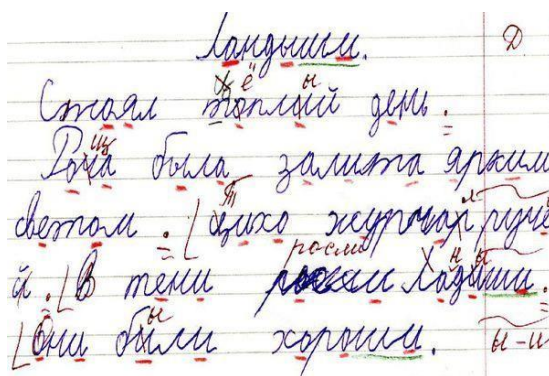 Ландыши. Д
Стоял тёплый день.
Роща была залита ярким
светом. Тихо журчал ручё
й. В тени росли Ландыши.
Они были хороши. ы-и